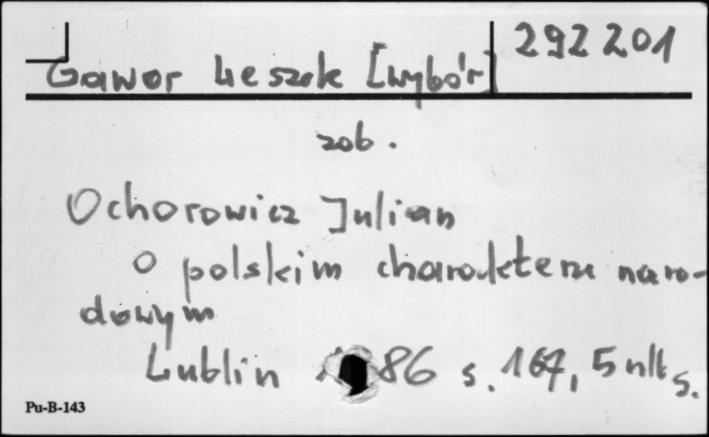 Gawor Leszek [wybór] 292 201
zob.
Ochorowicz Julian
O polskim charakterze naro-
dowym
Lublin 86 s. 167, 5 nlb s.
Pu-B-143